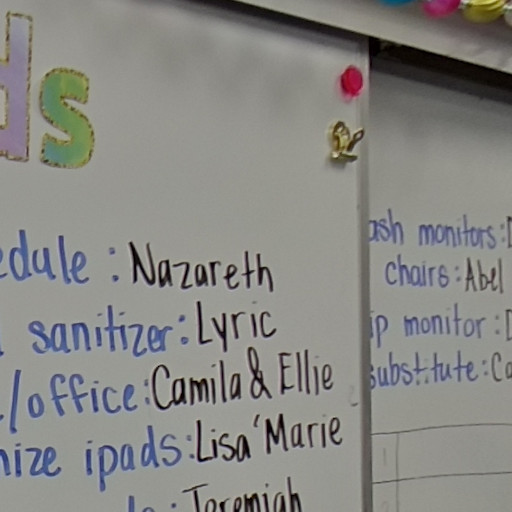 ds
edule : Nazareth
sanitizer: Lyric
/office: Camila & Ellie
nize ipads: Lisa'Marie
: Jeremiah
ash monitors:
chairs: Abel
ip monitor:
substitute: Ca